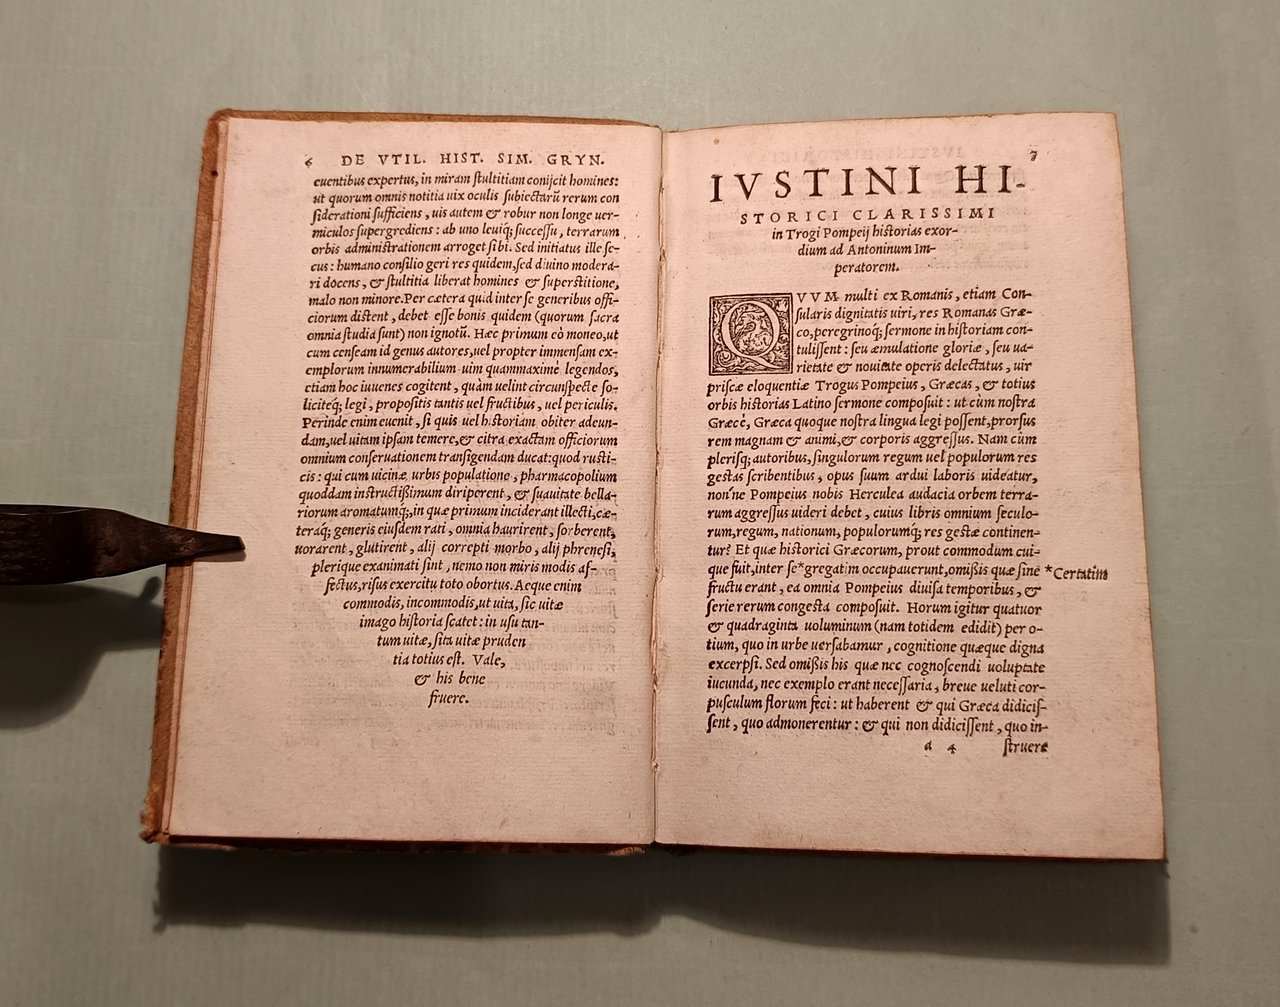 6 DE VTIL. HIST. SIM. GRYN.
euentibus expertus, in miram ſtultitiam conijcit homines:
ut quorum omnis notitia uix oculis ſubiectarũ rerum con
ſiderationi ſufficiens, uis autem & robur non longe uer-
miculos ſupergrediens: ab uno leuiq; ſucceſſu, terrarum
orbis adminiſtrationem arroget ſibi. Sed initiatus ille ſe-
cus: humano conſilio geri res quidem, ſed diuino modera-
ri docens, & ſtultitia liberat homines & ſuperſtitione,
malo non minore. Per cætera quid inter ſe generibus offi-
ciorum diſtent, debet eſſe bonis quidem (quorum ſacra
omnia ſtudia ſunt) non ignotũ. Hæc primum eò moneo, ut
cum cenſeam id genus autores, uel propter immenſam ex-
emplorum innumerabilium uim quammaximè legendos,
etiam hoc iuuenes cogitent, quàm uelint circunſpecte ſo-
liciteq; legi, propoſitis tantis uel fructibus, uel periculis.
Perinde enim euenit, ſi quis uel hiſtoriam obiter adeun-
dam, uel uitam ipſam temere, & citra exactam officiorum
omnium conſeruationem tranſigendam ducat: quod ruſti-
cis: qui cum uicinæ urbis populatione, pharmacopolium
quoddam inſtructißimum diriperent, & ſuauitate bella-
riorum aromatumq;, in quæ primum inciderant illecti, cæ-
teraq; generis eiuſdem rati, omnia haurirent, ſorberent,
uorarent, glutirent, alij correpti morbo, alij phreneſi,
plerique exanimati ſint, nemo non miris modis af-
fectus, riſus exercitu toto obortus. Aeque enim
commodis, incommodis, ut uita, ſic uitæ
imago hiſtoria ſcatet: in uſu tan-
tum uitæ, ſita uitæ pruden
tia totius eſt. Vale,
& his bene
fruere.
7
IVSTINI HI-
STORICI CLARISSIMI
in Trogi Pompeij hiſtorias exor-
dium ad Antoninum Im-
peratorem.
QVVM multi ex Romanis, etiam Con-
ſularis dignitatis uiri, res Romanas Græ-
co, peregrinoq; ſermone in hiſtoriam con-
tuliſſent: ſeu æmulatione gloriæ, ſeu ua-
rietate & nouitate operis delectatus, uir
priſcæ eloquentiæ Trogus Pompeius, Græcas, & totius
orbis hiſtorias Latino ſermone compoſuit: ut cùm noſtra
Græcè, Græca quoque noſtra lingua legi poſſent, prorſus
rem magnam & animi, & corporis aggreſſus. Nam cùm
pleriſq; autoribus, ſingulorum regum uel populorum res
geſtas ſcribentibus, opus ſuum ardui laboris uideatur,
nonne Pompeius nobis Herculea audacia orbem terra-
rum aggreſſus uideri debet, cuius libris omnium ſeculo-
rum, regum, nationum, populorumq; res geſtæ continen-
tur? Et quæ hiſtorici Græcorum, prout commodum cui-
que fuit, inter ſe *gregatim occupauerunt, omißis quæ ſine *Certatim
fructu erant, ea omnia Pompeius diuiſa temporibus, &
ſerie rerum congeſta compoſuit. Horum igitur quatuor
& quadraginta uoluminum (nam totidem edidit) per o-
tium, quo in urbe uerſabamur, cognitione quæque digna
excerpſi. Sed omißis his quæ nec cognoſcendi uoluptate
iucunda, nec exemplo erant neceſſaria, breue ueluti cor-
puſculum florum feci: ut haberent & qui Græca didiciſ-
ſent, quo admonerentur: & qui non didiciſſent, quo in-
a 4 ſtruere